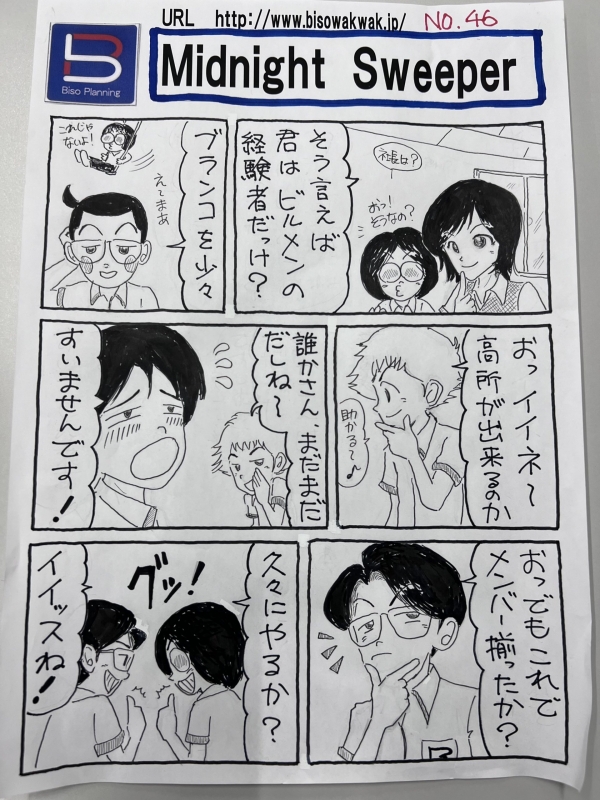 URL http://www.bisowakwak.jp/ NO.46
B
Biso Planning
Midnight Sweeper
そう言えば
君はビルメンの
経験者だっけ？
社長は？
おっ！
そうなの？
これじゃ
ないよ！
ブランコを少々
えてまあ
おっイイネ〜
高所が出来るのか
助かる〜♪
誰かさん、まだまだ
だしね〜
すいませんです！
おっでもこれで
メンバー揃ったか？
久々にやるか？
グッ！
イイッスね！